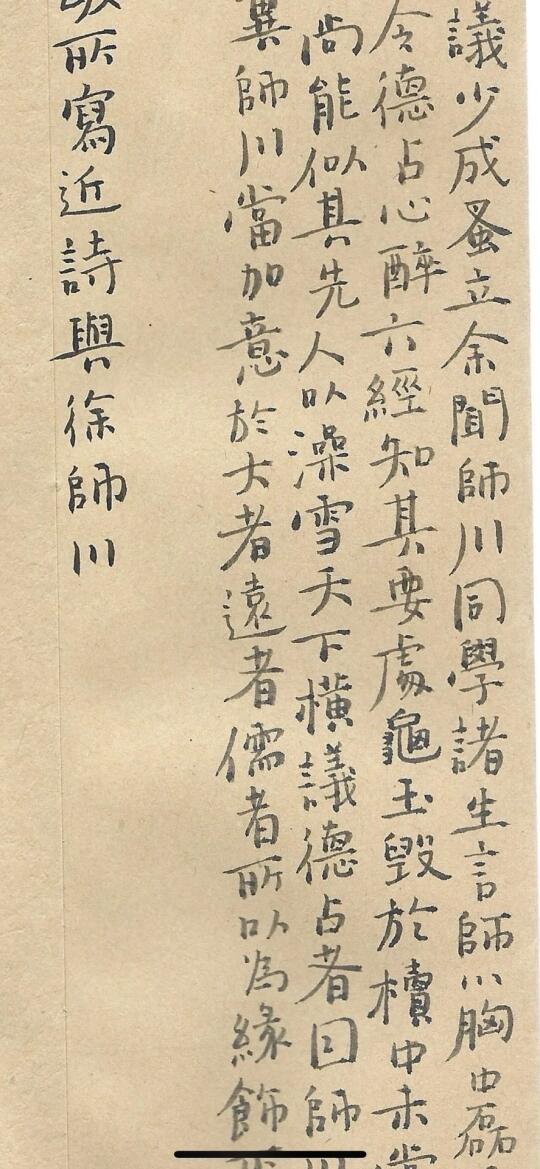 議少成蚤立余聞師川同學諸生言師川胸中磊
令德占心醉六經知其要處龜玉毀於櫝中未嘗
尚能似其先人以澡雪天下橫議德占者回師川
異師川當加意於大者遠者儒者所以為緣飾
所寫近詩與徐師川